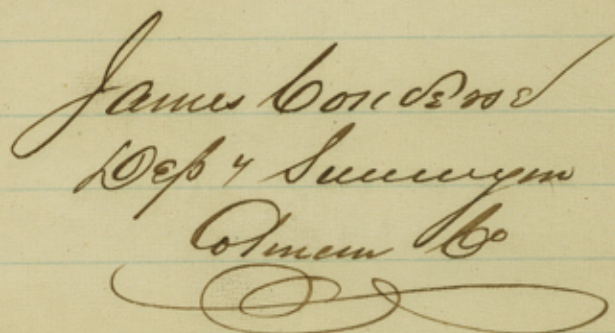 James Converse
Depy Surveyor
Colman Co